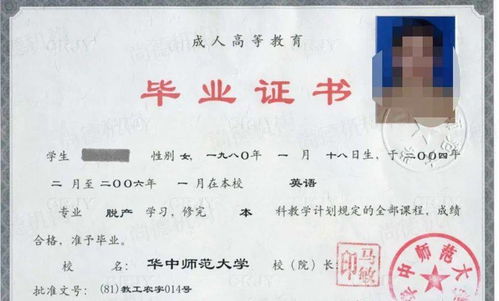 成人高等教育
毕业证书
学生 性别 女，一九八〇年 一 月 十八日生，于二〇〇四年
二 月至二〇〇六年 一 月在本校 英语
专业 脱产 学习，修完 本 科教学计划规定的全部课程，成绩
合格，准予毕业。
校 名：华中师范大学 校（院）长 马敏印
批准文号：(81)教工农字014号
中师范大